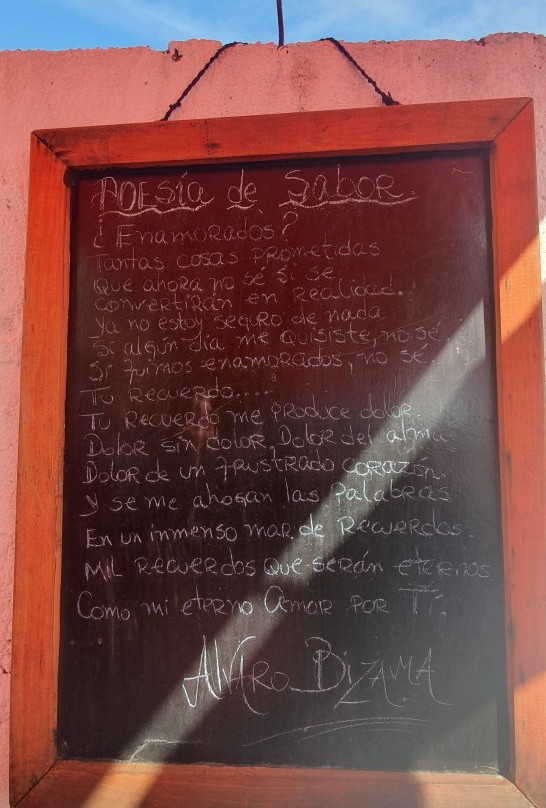 POESÍA de Sabor.
¿Enamorados?
Tantas cosas prometidas
Que ahora no sé si se
convertirán en realidad.
Ya no estoy seguro de nada
Si algún día me quisiste, no sé.
Si fuimos enamorados, no sé.
Tu Recuerdo....
Tu Recuerdo me produce dolor.
Dolor sin color. Dolor del alma
Dolor de un frustrado corazón.
Y se me ahogan las Palabras
En un inmenso mar de Recuerdos.
Mil Recuerdos que serán eternos
Como mi eterno Amor por Ti.
Alviro Bizama